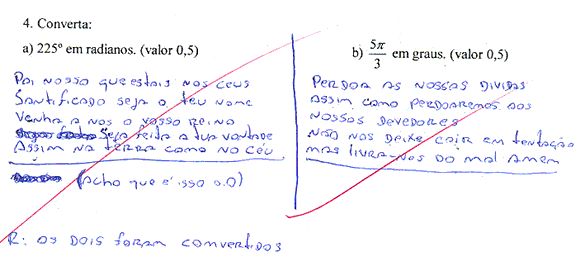 4. Converta:
a) 225º em radianos. (valor 0,5)
Pai nosso que estais nos ceus
Santificado seja o teu nome
Venha a nos o vosso reino
Seja feita a tua vontade
Assim na terra como no céu
(Acho que é isso o.O)
b) 5π/3 em graus. (valor 0,5)
Perdoa as nossas dividas
Assim como perdoaremos aos
nossos devedores
Não nos deixe cair em tentação
mas livra-nos do mal amem
R: os dois foram convertidos